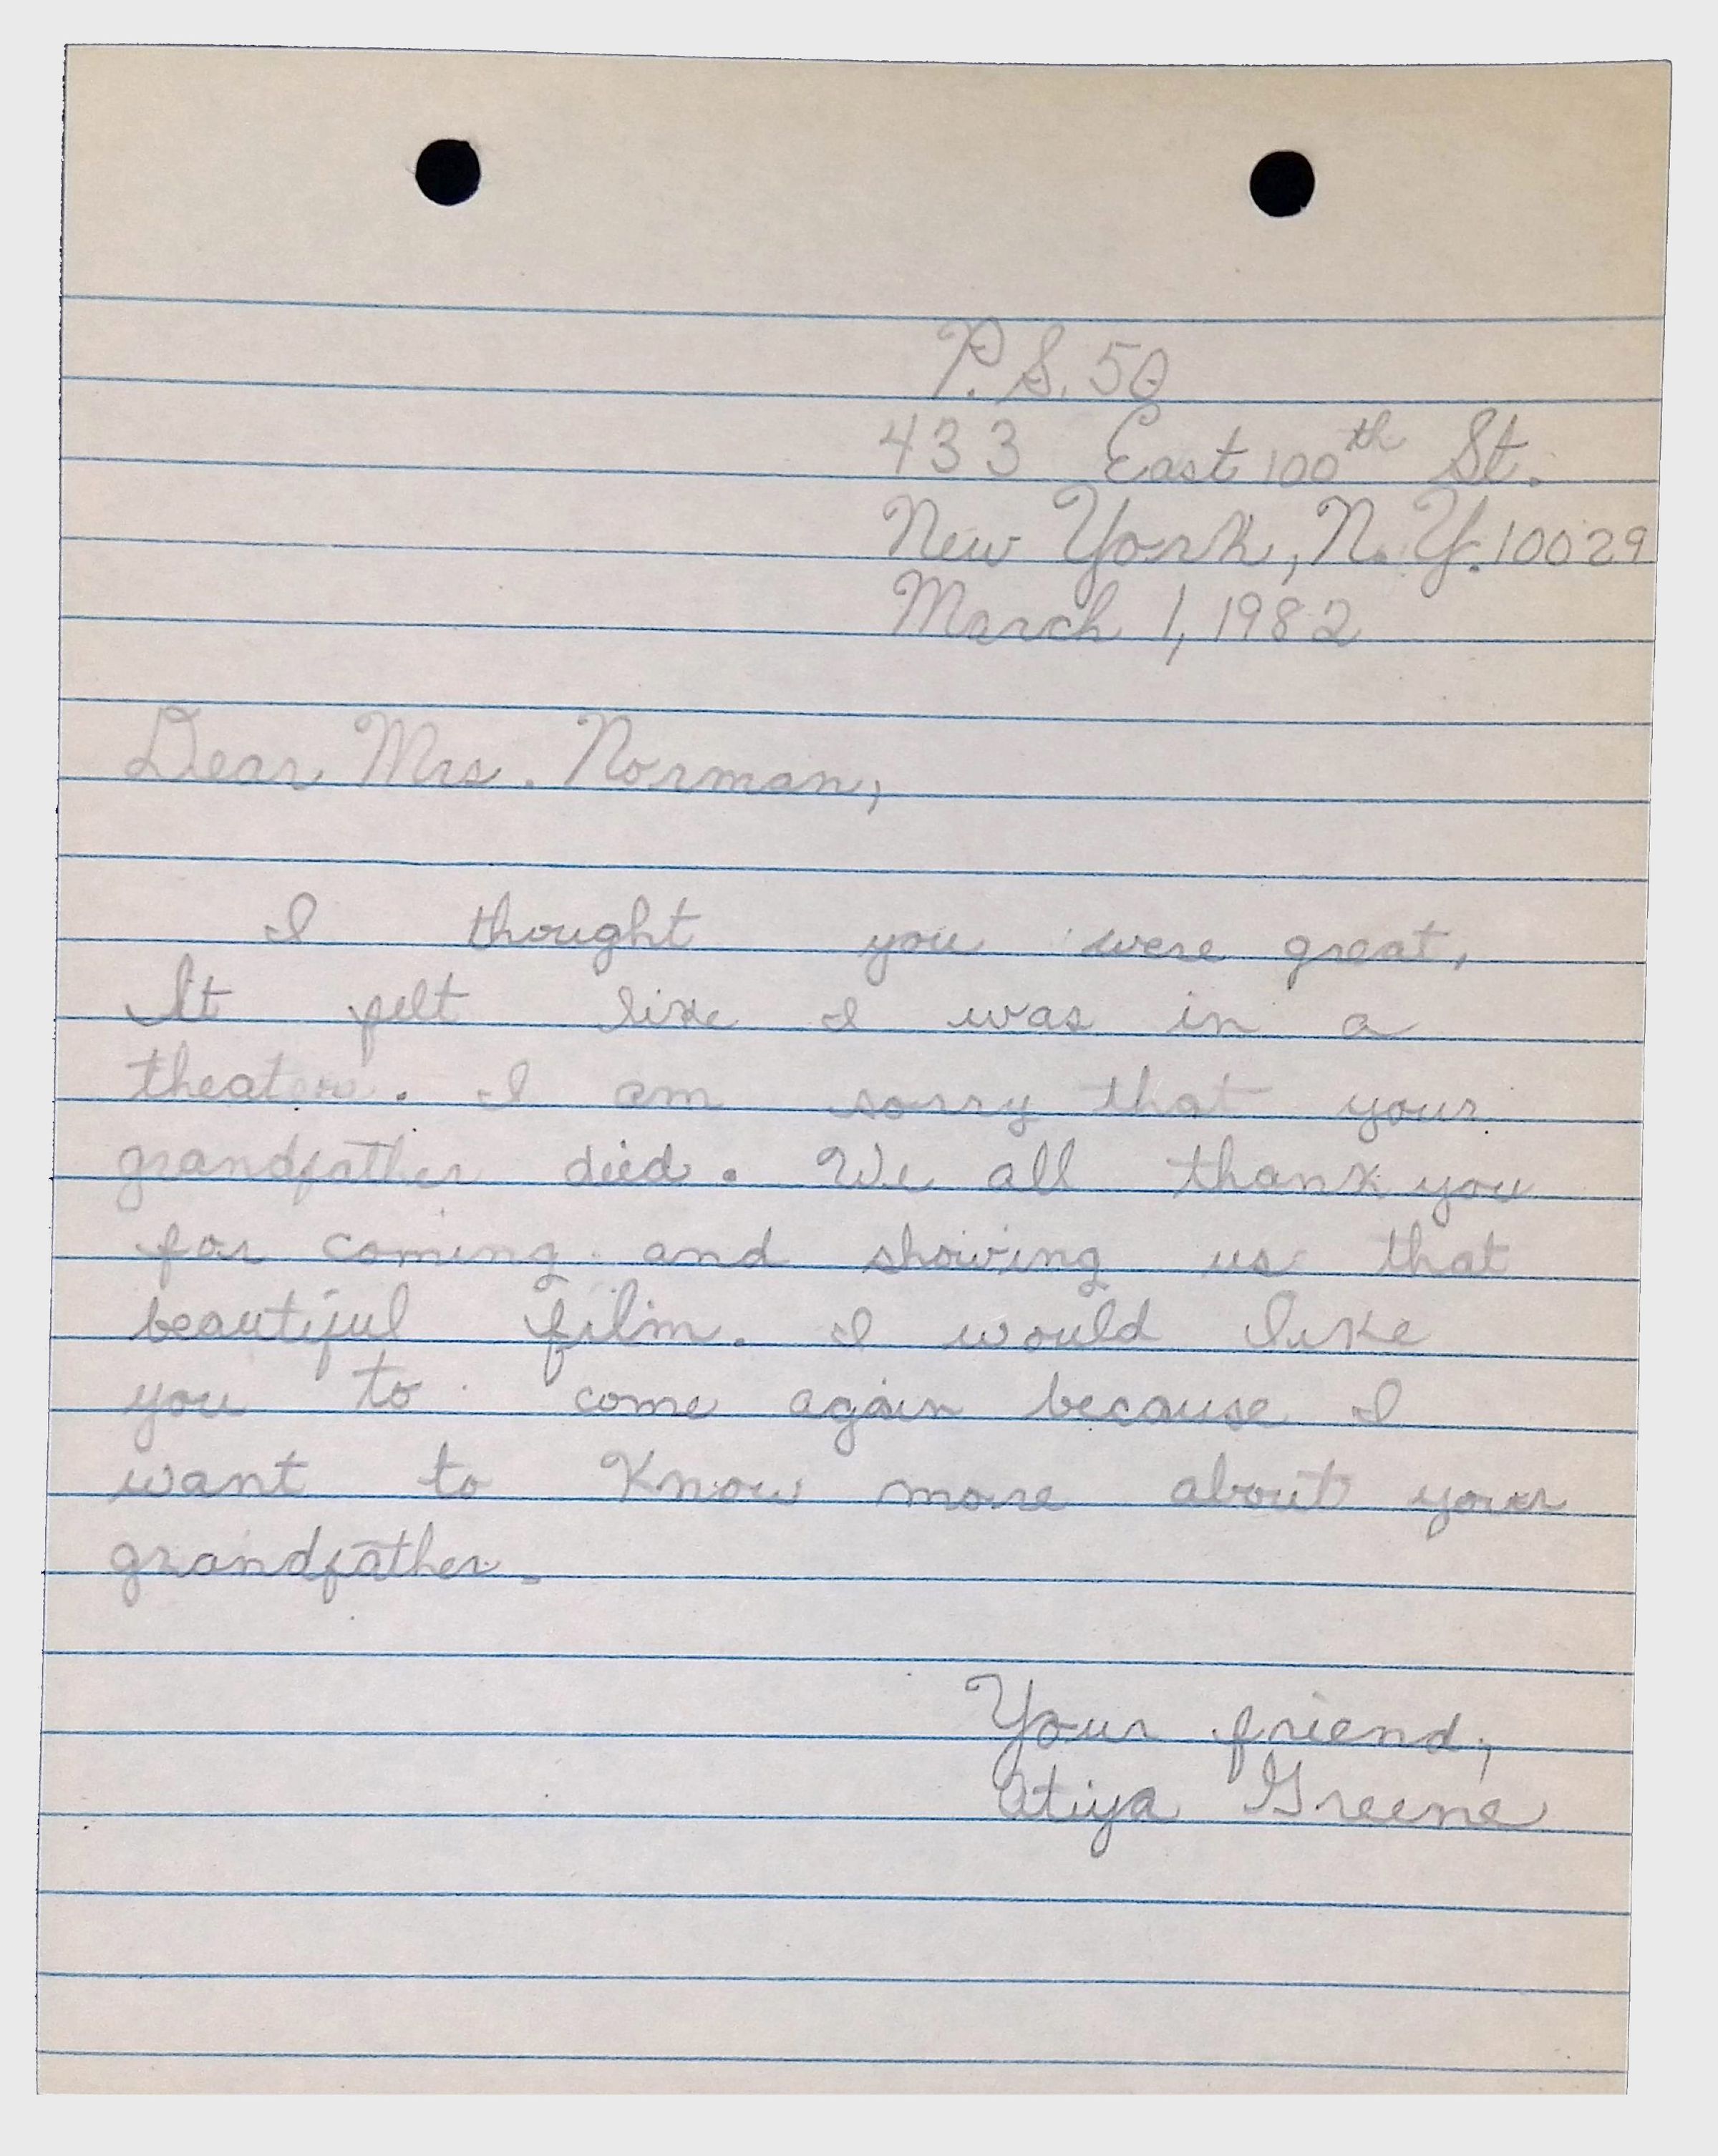 P. S. 50
433 East 100th St.
New York, N. Y. 10029
March 1, 1982
Dear Mrs. Norman,
I thought you were great,
It felt like I was in a
theatere. I am sorry that your
grandfather died. We all thank you
for coming and showing us that
beautiful film. I would like
you to come again because I
want to know more about your
grandfather.
Your friend,
Atiya Greene